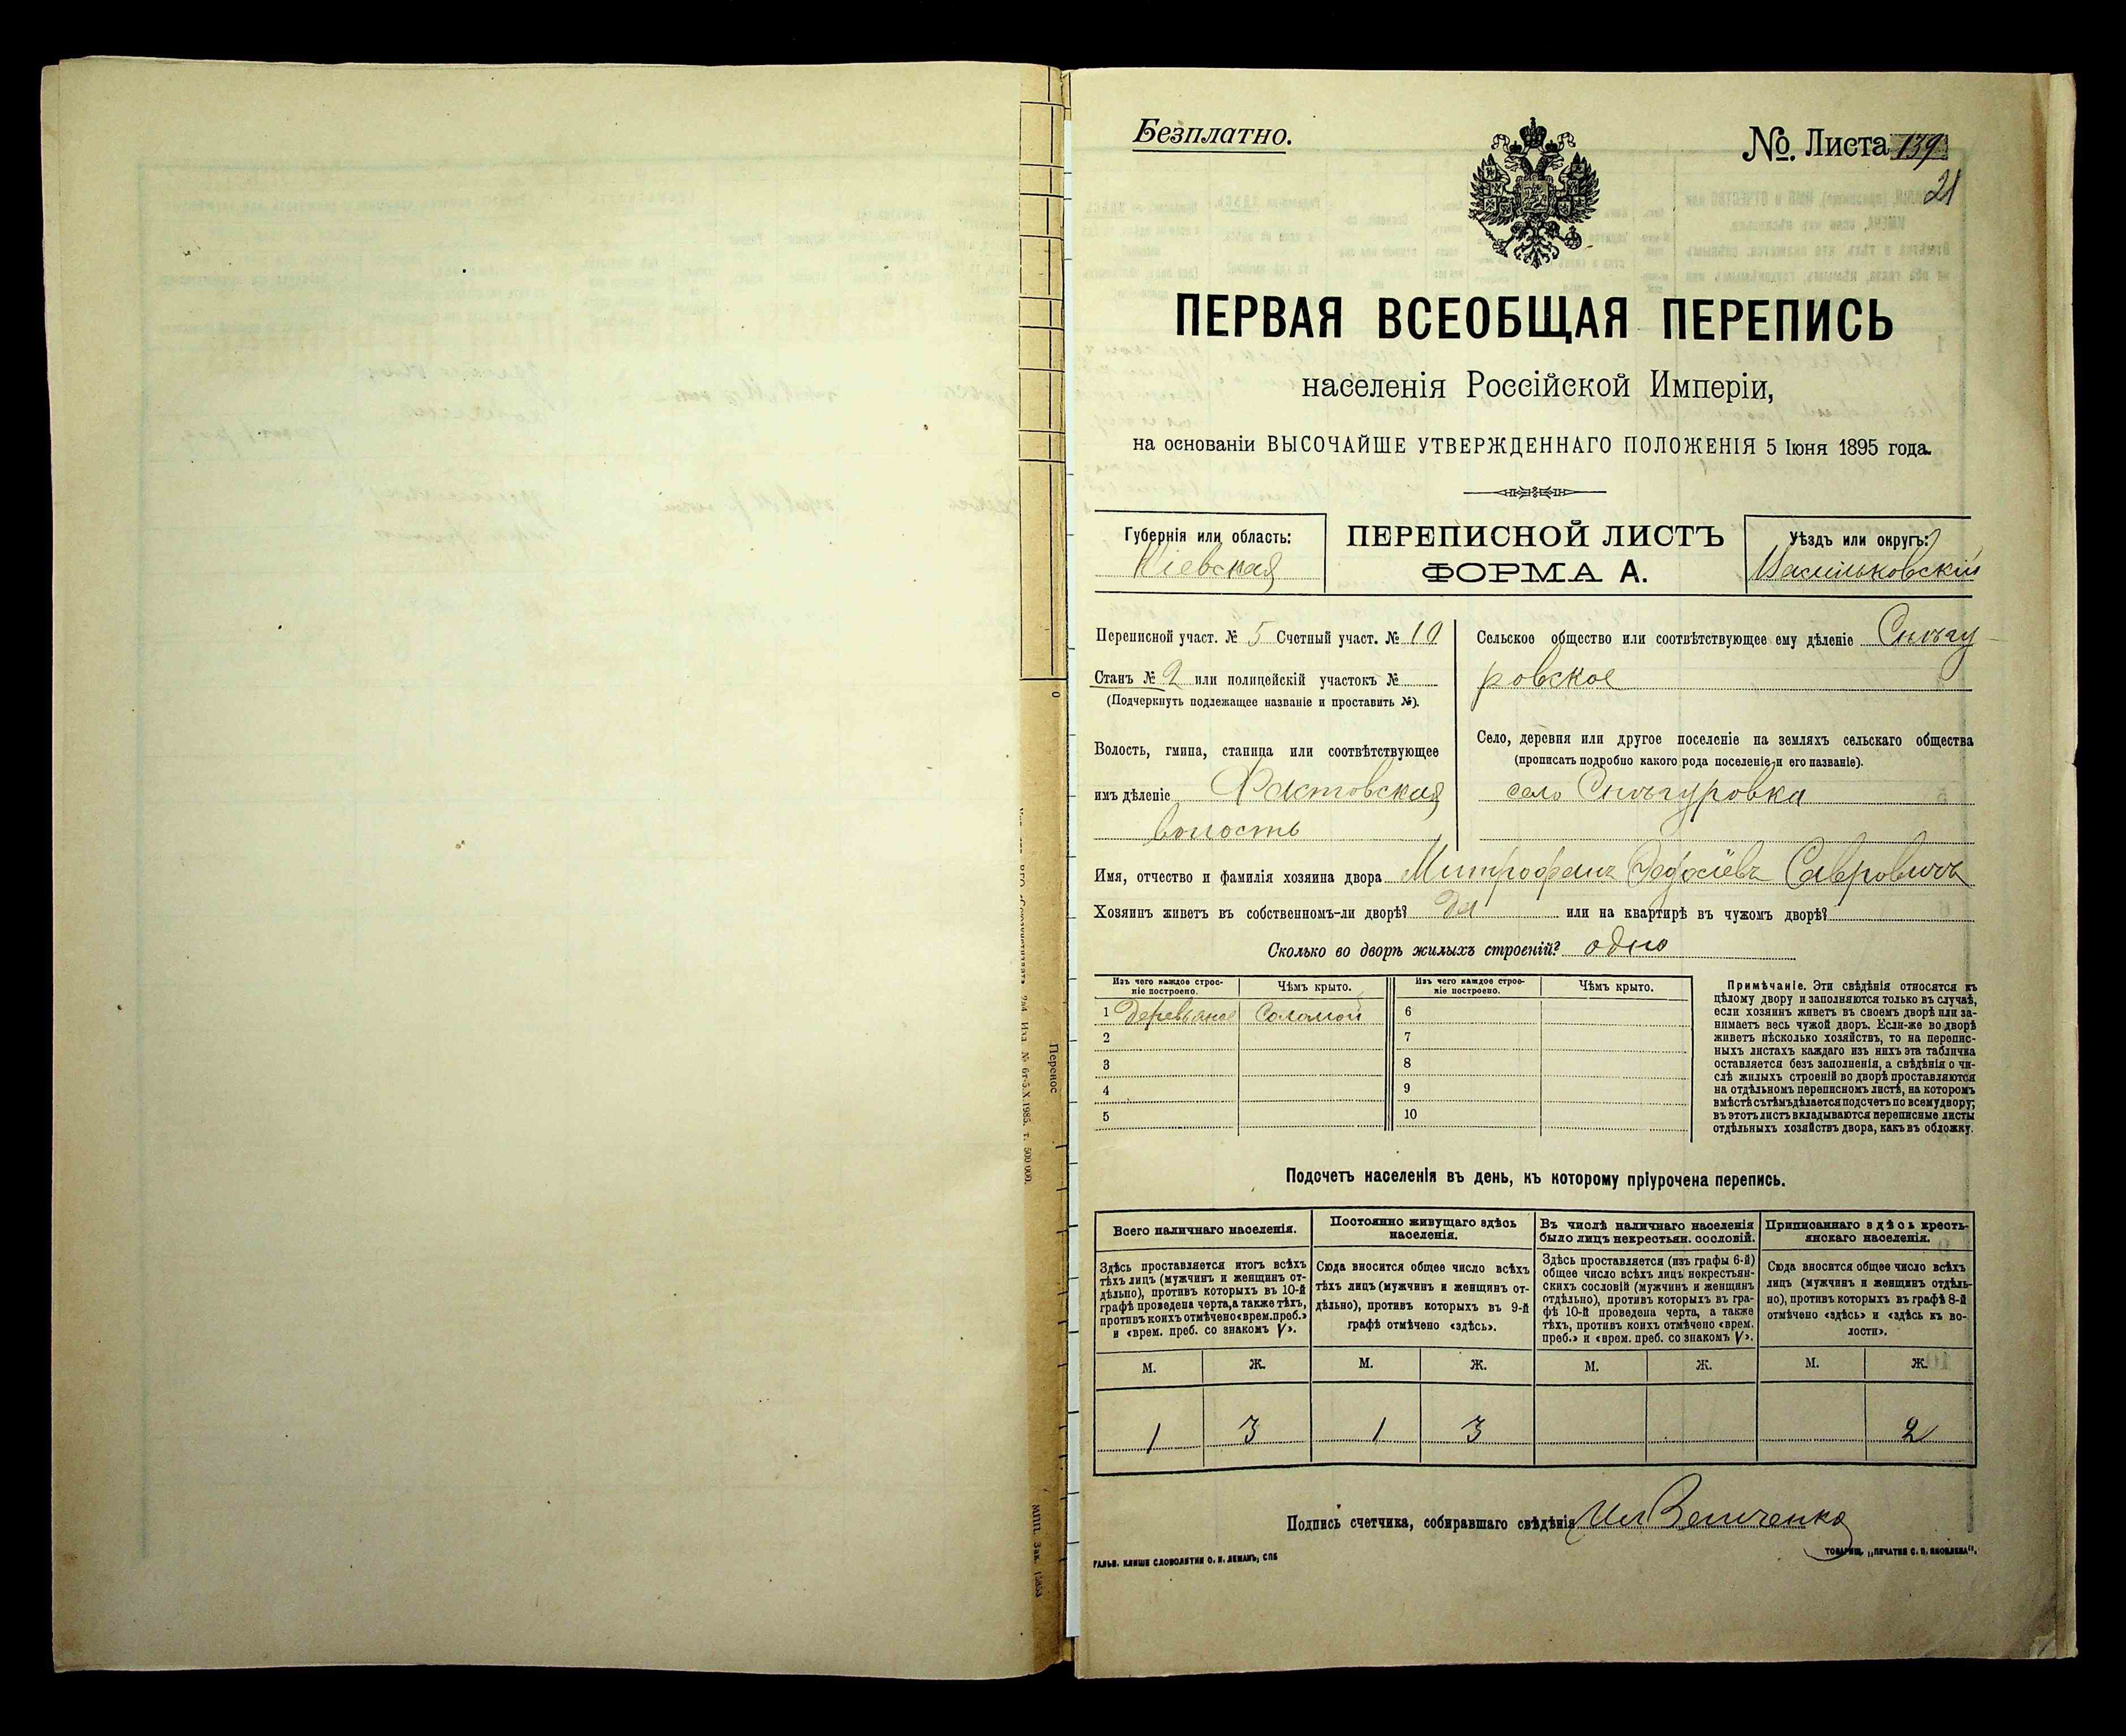 Безплатно.
№. Листа 139
21
ПЕРВАЯ ВСЕОБЩАЯ ПЕРЕПИСЬ
населенія Россійской Имперіи,
на основаніи ВЫСОЧАЙШЕ УТВЕРЖДЕННАГО ПОЛОЖЕНІЯ 5 Іюня 1895 года.
Губернія или область:
Кіевская
ПЕРЕПИСНОЙ ЛИСТЪ
ФОРМА А.
Уѣздъ или округъ:
Васильковскій
Переписной участ. № 5 Счетный участ. № 10
Станъ № 2 или полицейскій участокъ №
(Подчеркнуть подлежащее названіе и проставить №).
Волость, гмина, станица или соотвѣтствующее
имъ дѣленіе Фастовская
волость
Сельское общество или соотвѣтствующее ему дѣленіе Снѣгу-
ровское
Село, деревня или другое поселеніе на земляхъ сельскаго общества
(прописать подробно какого рода поселеніе и его названіе).
село Снѣгуровка
Имя, отчество и фамилія хозяина двора Митрофанъ
Хозяинъ живетъ въ собственномъ-ли дворѣ? да или на квартирѣ въ чужомъ дворѣ?
Сколько во дворѣ жилыхъ строеній? одно
Изъ чего каждое строе-
ніе построено.
Чѣмъ крыто.
Изъ чего каждое строе-
ніе построено.
Чѣмъ крыто.
1 Деревяное Соломой 6
2 7
3 8
4 9
5 10
Примѣчаніе. Эти свѣдѣнія относятся къ
цѣлому двору и заполняются только въ случаѣ,
если хозяинъ живетъ въ своемъ дворѣ или за-
нимаетъ весь чужой дворъ. Если-же во дворѣ
живетъ нѣсколько хозяйствъ, то на перепис-
ныхъ листахъ каждаго изъ нихъ эта табличка
оставляется безъ заполненія, а свѣдѣнія о чи-
слѣ жилыхъ строеній во дворѣ проставляются
на отдѣльномъ переписномъ листѣ, на которомъ
вмѣстѣ съ тѣмъ дѣлается подсчетъ по всему двору;
въ этотъ листъ вкладываются переписные листы
отдѣльныхъ хозяйствъ двора, какъ въ обложку.
Подсчетъ населенія въ день, къ которому пріурочена перепись.
Всего наличнаго населенія.
Постоянно живущаго здѣсь
населенія.
Въ числѣ наличнаго населенія
было лицъ некрестьян. сословій.
Приписаннаго здѣсь кресть-
янскаго населенія.
Здѣсь проставляется итогъ всѣхъ
тѣхъ лицъ (мужчинъ и женщинъ от-
дѣльно), противъ которыхъ въ 10-й
графѣ проведена черта, а также тѣхъ,
противъ коихъ отмѣчено «врем. преб.»
и «врем. преб. со знакомъ V».
Сюда вносится общее число всѣхъ
тѣхъ лицъ (мужчинъ и женщинъ от-
дѣльно), противъ которыхъ въ 9-й
графѣ отмѣчено «здѣсь».
Здѣсь проставляется (изъ графы 6-й)
общее число всѣхъ лицъ некрестьян-
скихъ сословій (мужчинъ и женщинъ
отдѣльно), противъ которыхъ въ гра-
фѣ 10-й проведена черта, а также
тѣхъ, противъ коихъ отмѣчено «врем.
преб.» и «врем. преб. со знакомъ V».
Сюда вносится общее число всѣхъ
лицъ (мужчинъ и женщинъ отдѣль-
но), противъ которыхъ въ графѣ 8-й
отмѣчено «здѣсь» и «здѣсь къ во-
лости».
М. Ж. М. Ж. М. Ж. М. Ж.
1 3 1 3 2
Подпись счетчика, собиравшаго свѣдѣнія
ГАЛЬВ. КЛИШЕ СЛОВОЛИТНИ О. И. ЛЕМАНЪ, СПБ
ТОВАРИЩ. „ПЕЧАТНЯ С. П. ЯКОВЛЕВА".
Перенос